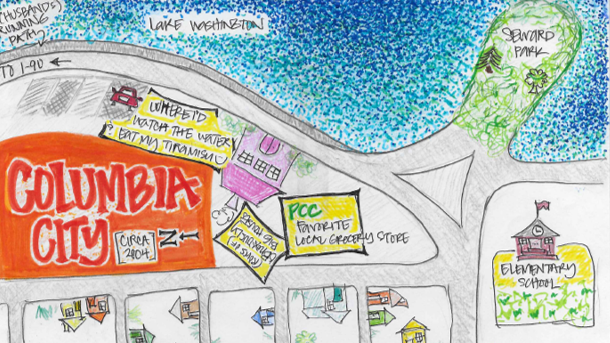 (HUSBANDS
RUNNING
PATH)
LAKE WASHINGTON
SEWARD
PARK
TO I-90
WHERE I'D
WATCH THE WATER
& EAT MY TIRAMISU
COLUMBIA
CITY
[CIRCA
2004]
N
BIG HOUSES
PCC
FAVORITE
LOCAL GROCERY STORE
ELEMENTARY
SCHOOL